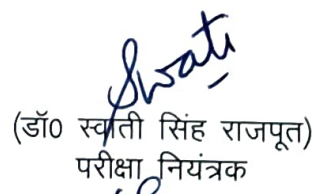 Swati
(डॉ0 स्वाती सिंह राजपूत)
परीक्षा नियंत्रक